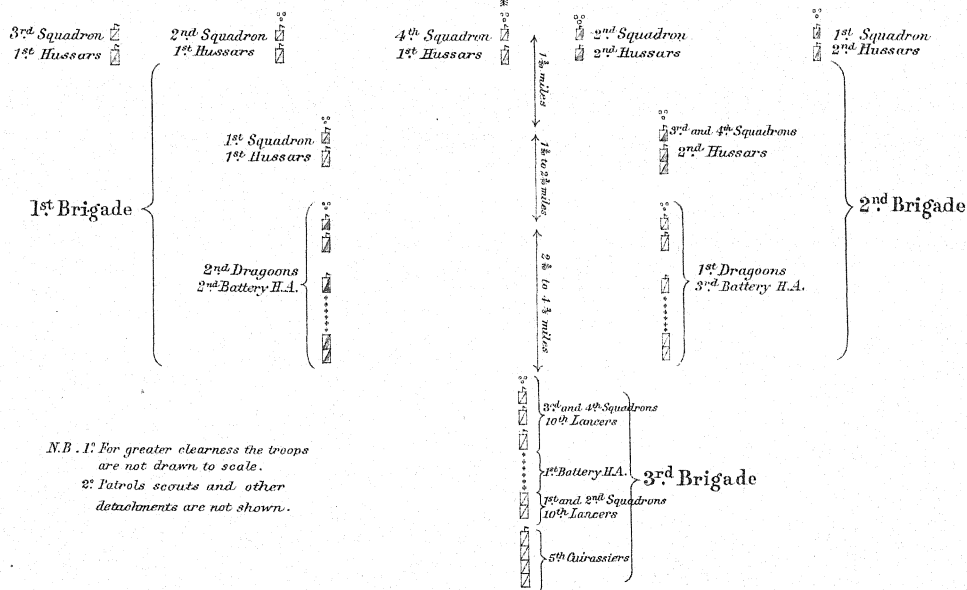 3rd Squadron
1st Hussars
2nd Squadron
1st Hussars
4th Squadron
1st Hussars
2nd Squadron
2nd Hussars
1st Squadron
2nd Hussars
miles
1st Squadron
1st Hussars
3rd and 4th Squadrons
2nd Hussars
to miles
1st Brigade
2nd Brigade
2nd Dragoons
2nd Battery H.A.
1st Dragoons
3rd Battery H.A.
to miles
3rd and 4th Squadrons
10th Lancers
1st Battery H.A.
3rd Brigade
1st and 2nd Squadrons
10th Lancers
5th Cuirassiers
N.B. 1º. For greater clearness the troops
are not drawn to scale.
2º. Patrols scouts and other
detachments are not shown.